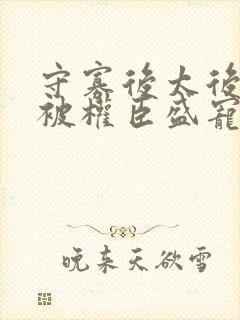 守寡後太後
被權臣盛寵
晚来天欲雪